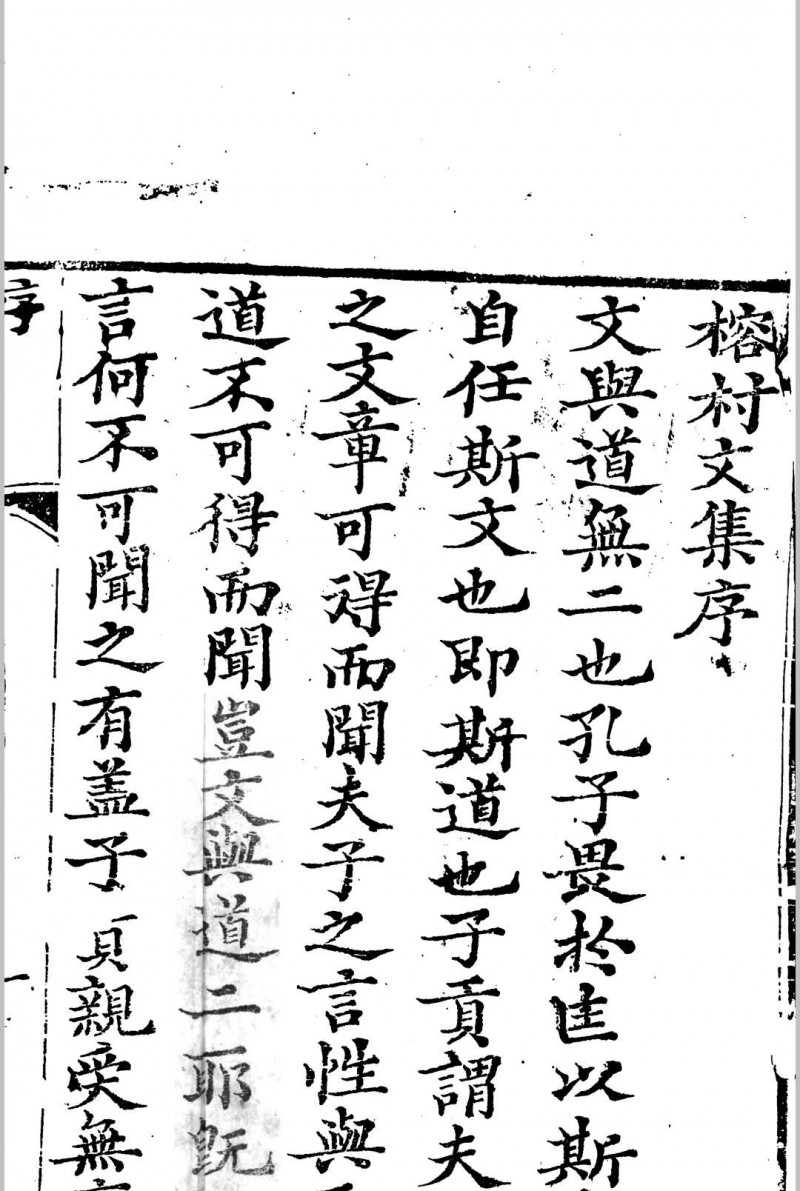 榕村文集序
文與道無二也孔子畏於匡以斯
自任斯文也即斯道也子貢謂夫
之文章可得而聞夫子之言性與
道不可得而聞豈文與道二耶旣
言何不可聞之有盖子貢親受無
序
一